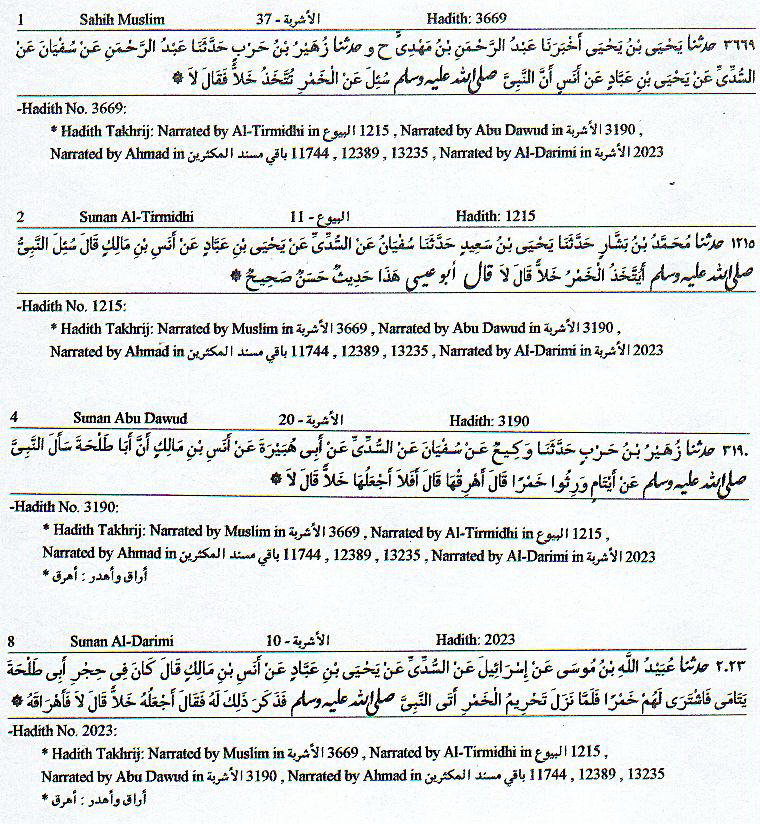 1 Sahih Muslim 37 - الأشربة Hadith: 3669
٣٦٦٩ حدثنا يَحْيَى بْنُ يَحْيَى أَخْبَرَنَا عَبْدُ الرَّحْمَنِ بْنُ مَهْدِيٍّ ح و حدثنا زُهَيْرُ بْنُ حَرْبٍ حَدَّثَنَا عَبْدُ الرَّحْمَنِ عَنْ سُفْيَانَ عَنْ
السُّدِّيِّ عَنْ يَحْيَى بْنِ عَبَّادٍ عَنْ أَنَسٍ أَنَّ النَّبِيَّ صلى الله عليه وسلم سُئِلَ عَنْ الْخَمْرِ تُتَّخَذُ خَلاًّ فَقَالَ لاَ *
-Hadith No. 3669:
* Hadith Takhrij: Narrated by Al-Tirmidhi in البيوع 1215 , Narrated by Abu Dawud in الأشربة 3190 ,
Narrated by Ahmad in باقي مسند المكثرين 11744 , 12389 , 13235 , Narrated by Al-Darimi in الأشربة 2023
2 Sunan Al-Tirmidhi 11 - البيوع Hadith: 1215
١٢١٥ حدثنا مُحَمَّدُ بْنُ بَشَّارٍ حَدَّثَنَا يَحْيَى بْنُ سَعِيدٍ حَدَّثَنَا سُفْيَانُ عَنْ السُّدِّيِّ عَنْ يَحْيَى بْنِ عَبَّادٍ عَنْ أَنَسِ بْنِ مَالِكٍ قَالَ سُئِلَ النَّبِيُّ
صلى الله عليه وسلم أَيُتَّخَذُ الْخَمْرُ خَلاًّ قَالَ لاَ قال أبو عيسى هَذَا حَدِيثٌ حَسَنٌ صَحِيحٌ *
-Hadith No. 1215:
* Hadith Takhrij: Narrated by Muslim in الأشربة 3669 , Narrated by Abu Dawud in الأشربة 3190 ,
Narrated by Ahmad in باقي مسند المكثرين 11744 , 12389 , 13235 , Narrated by Al-Darimi in الأشربة 2023
4 Sunan Abu Dawud 20 - الأشربة Hadith: 3190
٣١٩٠ حدثنا زُهَيْرُ بْنُ حَرْبٍ حَدَّثَنَا وَكِيعٌ عَنْ سُفْيَانَ عَنْ السُّدِّيِّ عَنْ أَبِي هُبَيْرَةَ عَنْ أَنَسِ بْنِ مَالِكٍ أَنَّ أَبَا طَلْحَةَ سَأَلَ النَّبِيَّ
صلى الله عليه وسلم عَنْ أَيْتَامٍ وَرِثُوا خَمْرًا قَالَ أَهْرِقْهَا قَالَ أَفَلاَ أَجْعَلُهَا خَلاًّ قَالَ لاَ *
-Hadith No. 3190:
* Hadith Takhrij: Narrated by Muslim in الأشربة 3669 , Narrated by Al-Tirmidhi in البيوع 1215 ,
Narrated by Ahmad in باقي مسند المكثرين 11744 , 12389 , 13235 , Narrated by Al-Darimi in الأشربة 2023
* أراق وأهدر : أهرق
8 Sunan Al-Darimi 10 - الأشربة Hadith: 2023
٢٠٢٣ حدثنا عُبَيْدُ اللَّهِ بْنُ مُوسَى عَنْ إِسْرَائِيلَ عَنْ السُّدِّيِّ عَنْ يَحْيَى بْنِ عَبَّادٍ عَنْ أَنَسِ بْنِ مَالِكٍ قَالَ كَانَ فِي حِجْرِ أَبِي طَلْحَةَ
يَتَامَى فَاشْتَرَى لَهُمْ خَمْرًا فَلَمَّا نَزَلَ تَحْرِيمُ الْخَمْرِ أَتَى النَّبِيَّ صلى الله عليه وسلم فَذَكَرَ ذَلِكَ لَهُ فَقَالَ أَجْعَلُهُ خَلاًّ قَالَ لاَ فَأَهْرَاقَهُ *
-Hadith No. 2023:
* Hadith Takhrij: Narrated by Muslim in الأشربة 3669 , Narrated by Al-Tirmidhi in البيوع 1215 ,
Narrated by Abu Dawud in الأشربة 3190 , Narrated by Ahmad in باقي مسند المكثرين 11744 , 12389 , 13235
* أراق وأهدر : أهرق